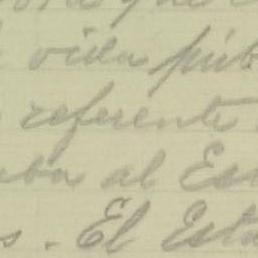 vida púb
referente
aba al Es
s. El Esta